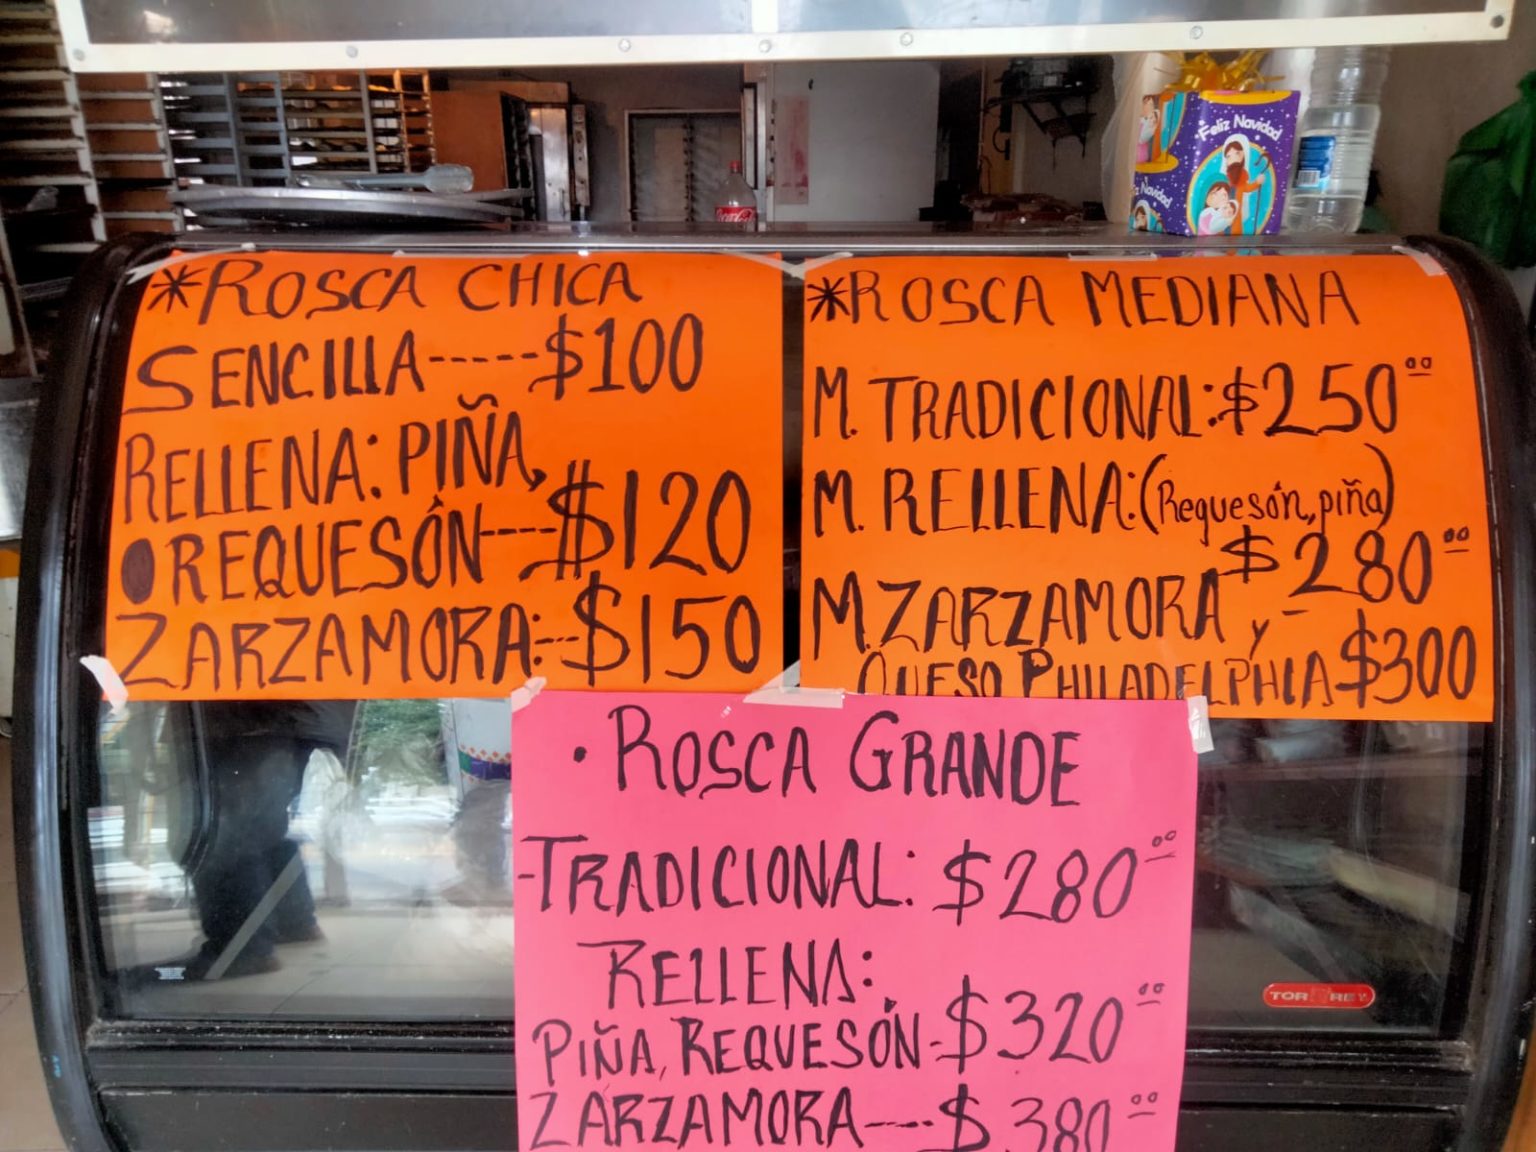 Feliz Navidad
Navidad
*ROSCA CHICA
SENCILLA-----$100
RELLENA: PIÑA,
REQUESÓN----$120
ZARZAMORA:--$150
*ROSCA MEDIANA
M. TRADICIONAL: $250.00
M. RELLENA: (Requesón, piña)
$280.00
M. ZARZAMORA y
QUESO PHILADELPHIA $300
• ROSCA GRANDE
-TRADICIONAL: $280.00
RELLENA:
PIÑA, REQUESÓN-$320.00
ZARZAMORA----$380.00
TOR REY